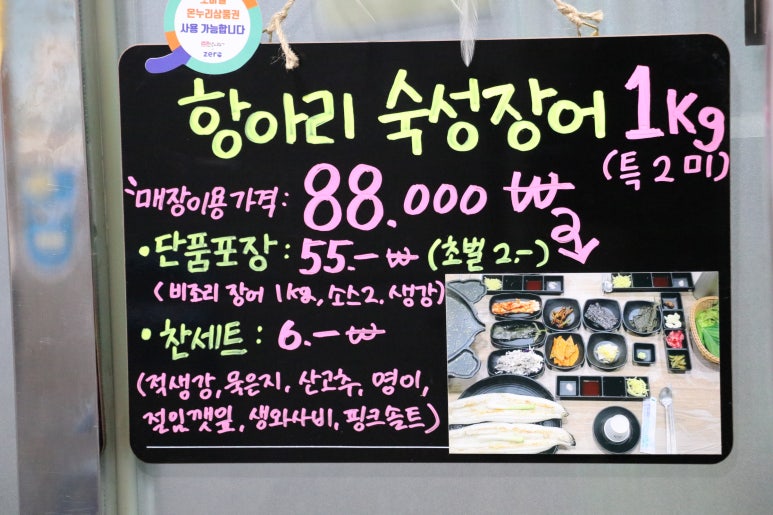 온누리상품권
사용 가능합니다
zero
항아리 숙성장어 1Kg
(특 2미)
매장이용가격: 88.000 ₩
• 단품포장 : 55.- ₩ (초벌 2.-)
(비조리 장어 1kg, 소스2, 생강)
• 찬세트 : 6.- ₩
(적생강, 묵은지, 산고추, 명이,
절임깻잎, 생와사비, 핑크솔트)